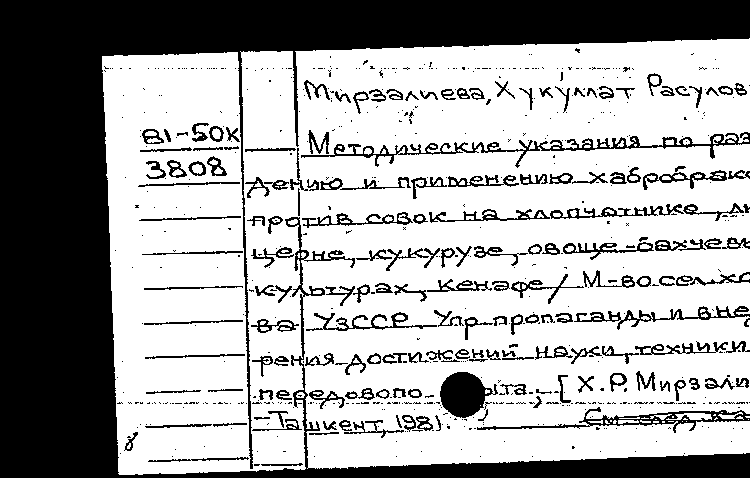 Мирзалиева, Хукуллат Расулов
81-50к
3808
Методические указания по раз
дению и применению хаброрак
против совок на хлопчатнике, лю
церне, кукурузе, овоще-бахчевы
культурах, кенафе / М-во сел. хо
ва УзССР, Упр. пропаганды и внед
рения достижений науки, техники
передового ыта; [Х.Р. Мирзали
-Ташкент, 1981.
См. след. ка